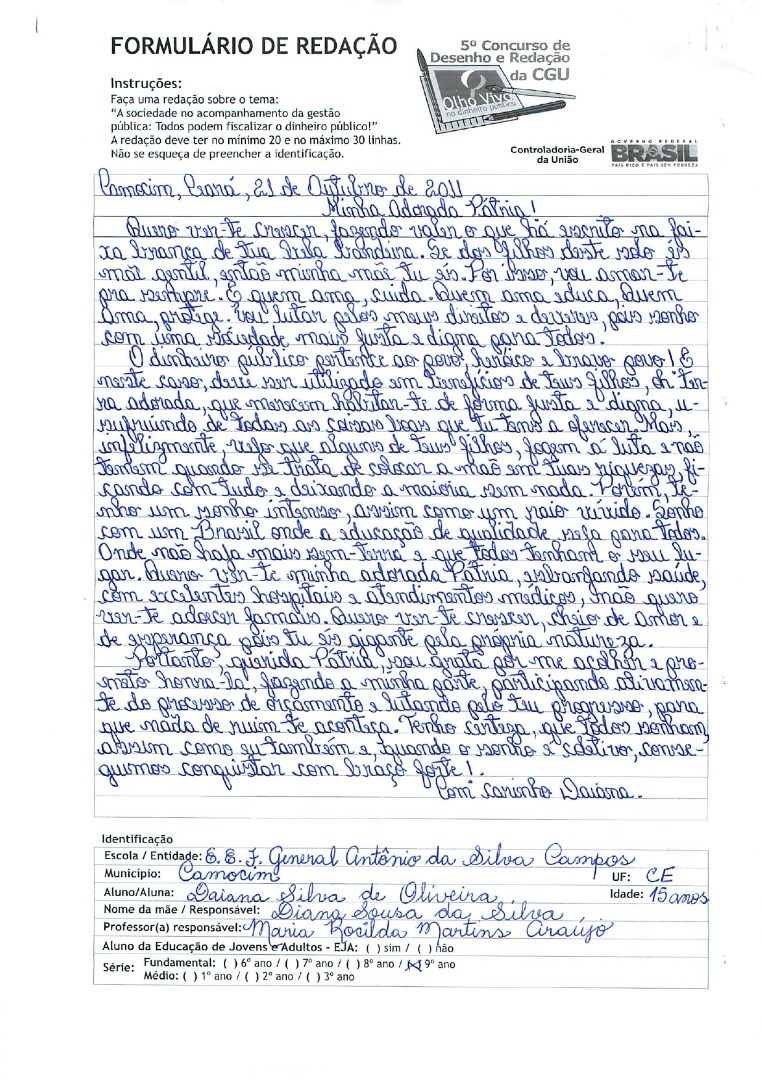 FORMULÁRIO DE REDAÇÃO
5º Concurso de
Desenho e Redação
da CGU
Olho Vivo
no dinheiro público
Instruções:
Faça uma redação sobre o tema:
"A sociedade no acompanhamento da gestão
pública: Todos podem fiscalizar o dinheiro público!"
A redação deve ter no mínimo 20 e no máximo 30 linhas.
Não se esqueça de preencher a identificação.
Controladoria-Geral
da União
GOVERNO FEDERAL
BRASIL
PAÍS RICO É PAÍS SEM POBREZA
Camocim, Ceará, 21 de Outubro de 2011
Minha Adorada Pátria!
Quero ver-te crescer, fazendo valer o que há escrito na fai-
xa branca de tua bela bandeira. Se dos filhos deste solo és
mãe gentil, então minha mãe tu és. Por isso, vou amar-te
pra sempre. E quem ama, cuida. Quem ama educa, Quem
ama, protege. Vou lutar pelos meus direitos e deveres, pois sonho
com uma sociedade mais justa e digna para todos.
O dinheiro público pertence ao povo, heróico e bravo povo! E
neste caso, deve ser utilizado em benefícios de teus filhos, oh ter-
ra adorada, que merecem habitar-te de forma justa e digna, u-
sufruindo de todas as coisas boas que tu tens a oferecer. Mas,
infelizmente, vejo que alguns de teus filhos, fogem à luta e não
temem quando se trata de colocar a mão em tuas riquezas, fi-
cando com tudo e deixando a maioria sem nada. Porém, te-
nho um sonho intenso, assim como um raio vívido. Sonho
com um Brasil onde a educação de qualidade seja para todos.
Onde não haja mais sem-terra e que todos tenham o seu lu-
gar. Quero ver-te minha adorada Pátria, esbanjando saúde,
com excelentes hospitais e atendimentos médicos, não quero
ver-te adoecer jamais. Quero ver-te crescer, cheio de amor e
de esperança pois tu és gigante pela própria natureza.
Portanto, querida Pátria, sou grata por me acolher e pro-
meto honra-la, fazendo a minha parte, participando ativamen-
te do processo de orçamento e lutando pelo teu progresso, para
que nada de ruim te aconteça. Tenho certeza, que todos sonham,
assim como eu também e, quando o sonho é coletivo, conse-
guimos conquistar com braço forte!.
Com carinho Daiana.
Identificação
Escola / Entidade: E. E. F. General Antônio da Silva Campos
Município: Camocim UF: CE
Aluno/Aluna: Daiana Silva de Oliveira Idade: 15 anos
Nome da mãe / Responsável: Diana Sousa da Silva
Professor(a) responsável: Maria Rocilda Martins Araújo
Aluno da Educação de Jovens e Adultos - EJA: ( ) sim / ( ) não
Série: Fundamental: ( ) 6º ano / ( ) 7º ano / ( ) 8º ano / (X) 9º ano
Médio: ( ) 1º ano / ( ) 2º ano / ( ) 3º ano